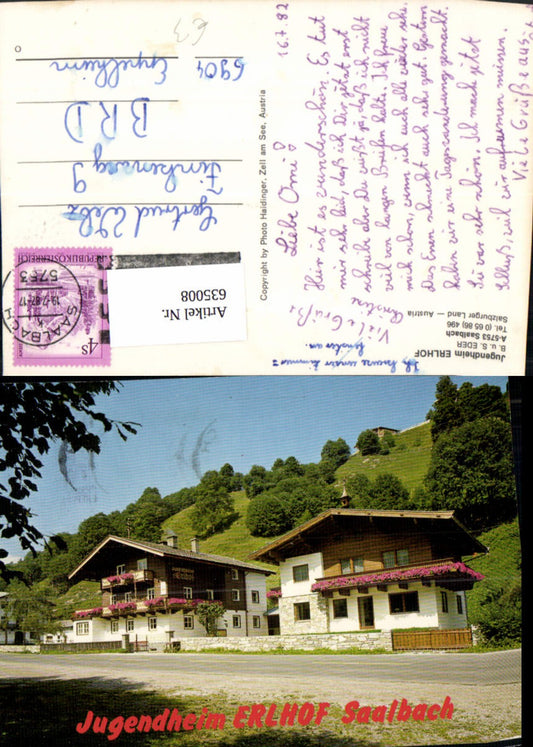 16.7.82
Liebe Omi!
Hier ist es wunderschön. Es tut
mir sehr leid, daß ich Dir jetzt erst
schreibe aber Du weißt ja, daß ich nicht
viel von langen Briefen halte. Ich freue
mich schon, wenn ich euch alle wieder sehe.
Das Essen schmeckt auch sehr gut. Gestern
haben wir eine Tageswanderung gemacht.
Sie war sehr schön. Ich mach jetzt
Schluß, weil wir aufräumen müssen.
Viele Grüße aus
Viele Grüße
Kerstin
Jugendheim ERLHOF
B. u. S. EDER
A-5753 Saalbach
Tel. (0 65 86) 496
Salzburger Land — Austria
Copyright by Photo Haidinger, Zell am See, Austria
REPUBLIK ÖSTERREICH
4 S
5753 SAALBACH
Gertrud
Finkenweg 9
BRD
6904 Eppelheim
€3
Artikel Nr.
635008
Jugendheim ERLHOF Saalbach